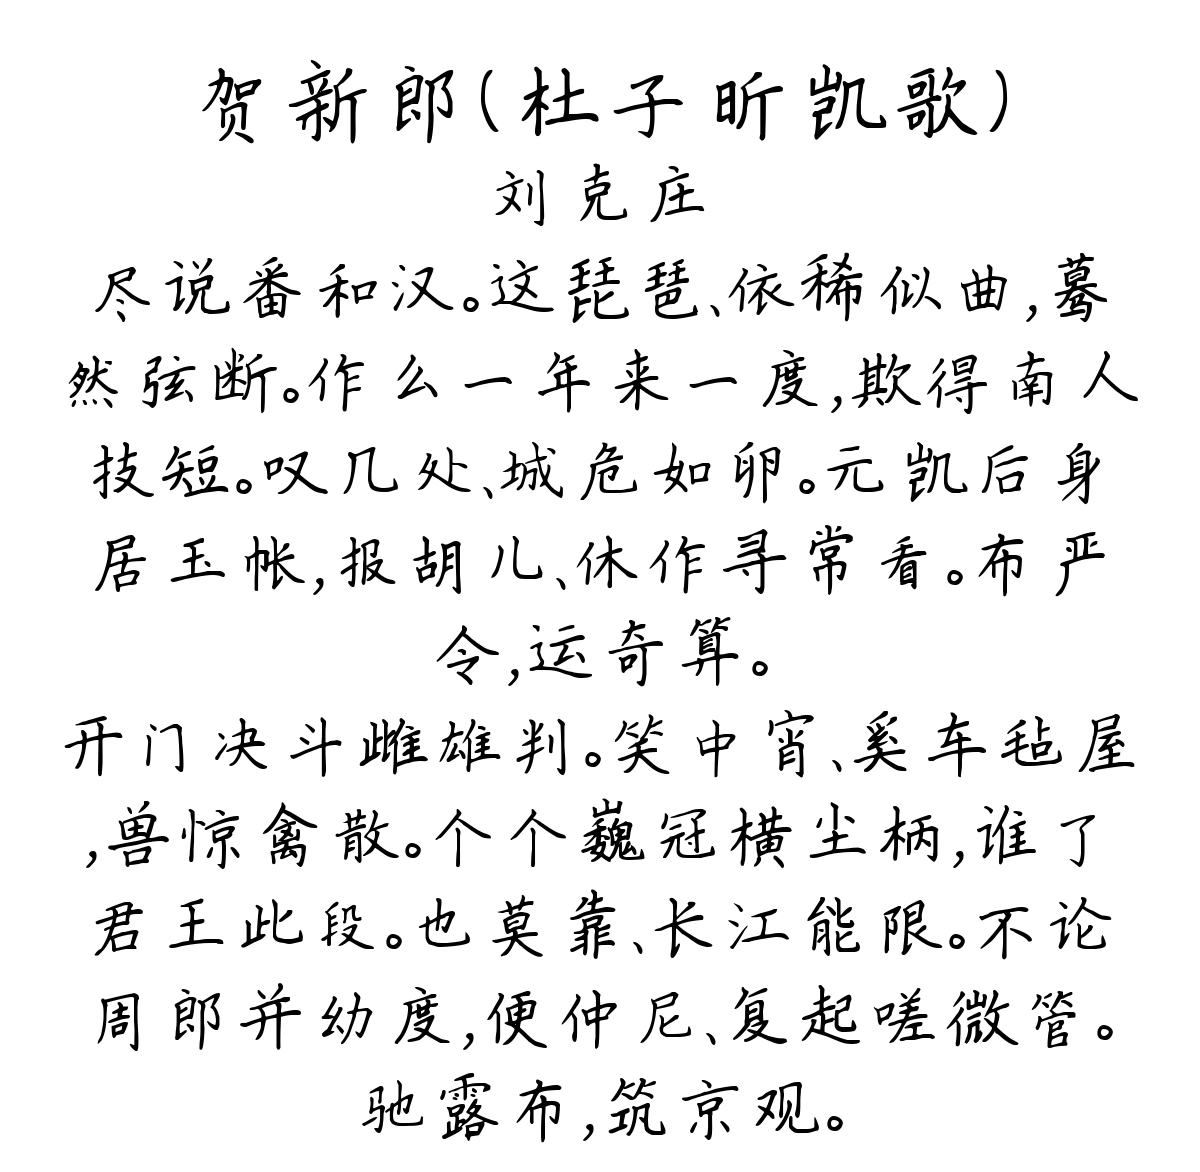 贺新郎(杜子昕凯歌)
刘克庄
尽说番和汉。这琵琶、依稀似曲,蓦
然弦断。作么一年来一度,欺得南人
技短。叹几处、城危如卵。元凯后身
居玉帐,报胡儿、休作寻常看。布严
令,运奇算。
开门决斗雌雄判。笑中宵、奚车毡屋
,兽惊禽散。个个巍冠横尘柄,谁了
君王此段。也莫靠、长江能限。不论
周郎并幼度,便仲尼、复起嗟微管。
驰露布,筑京观。